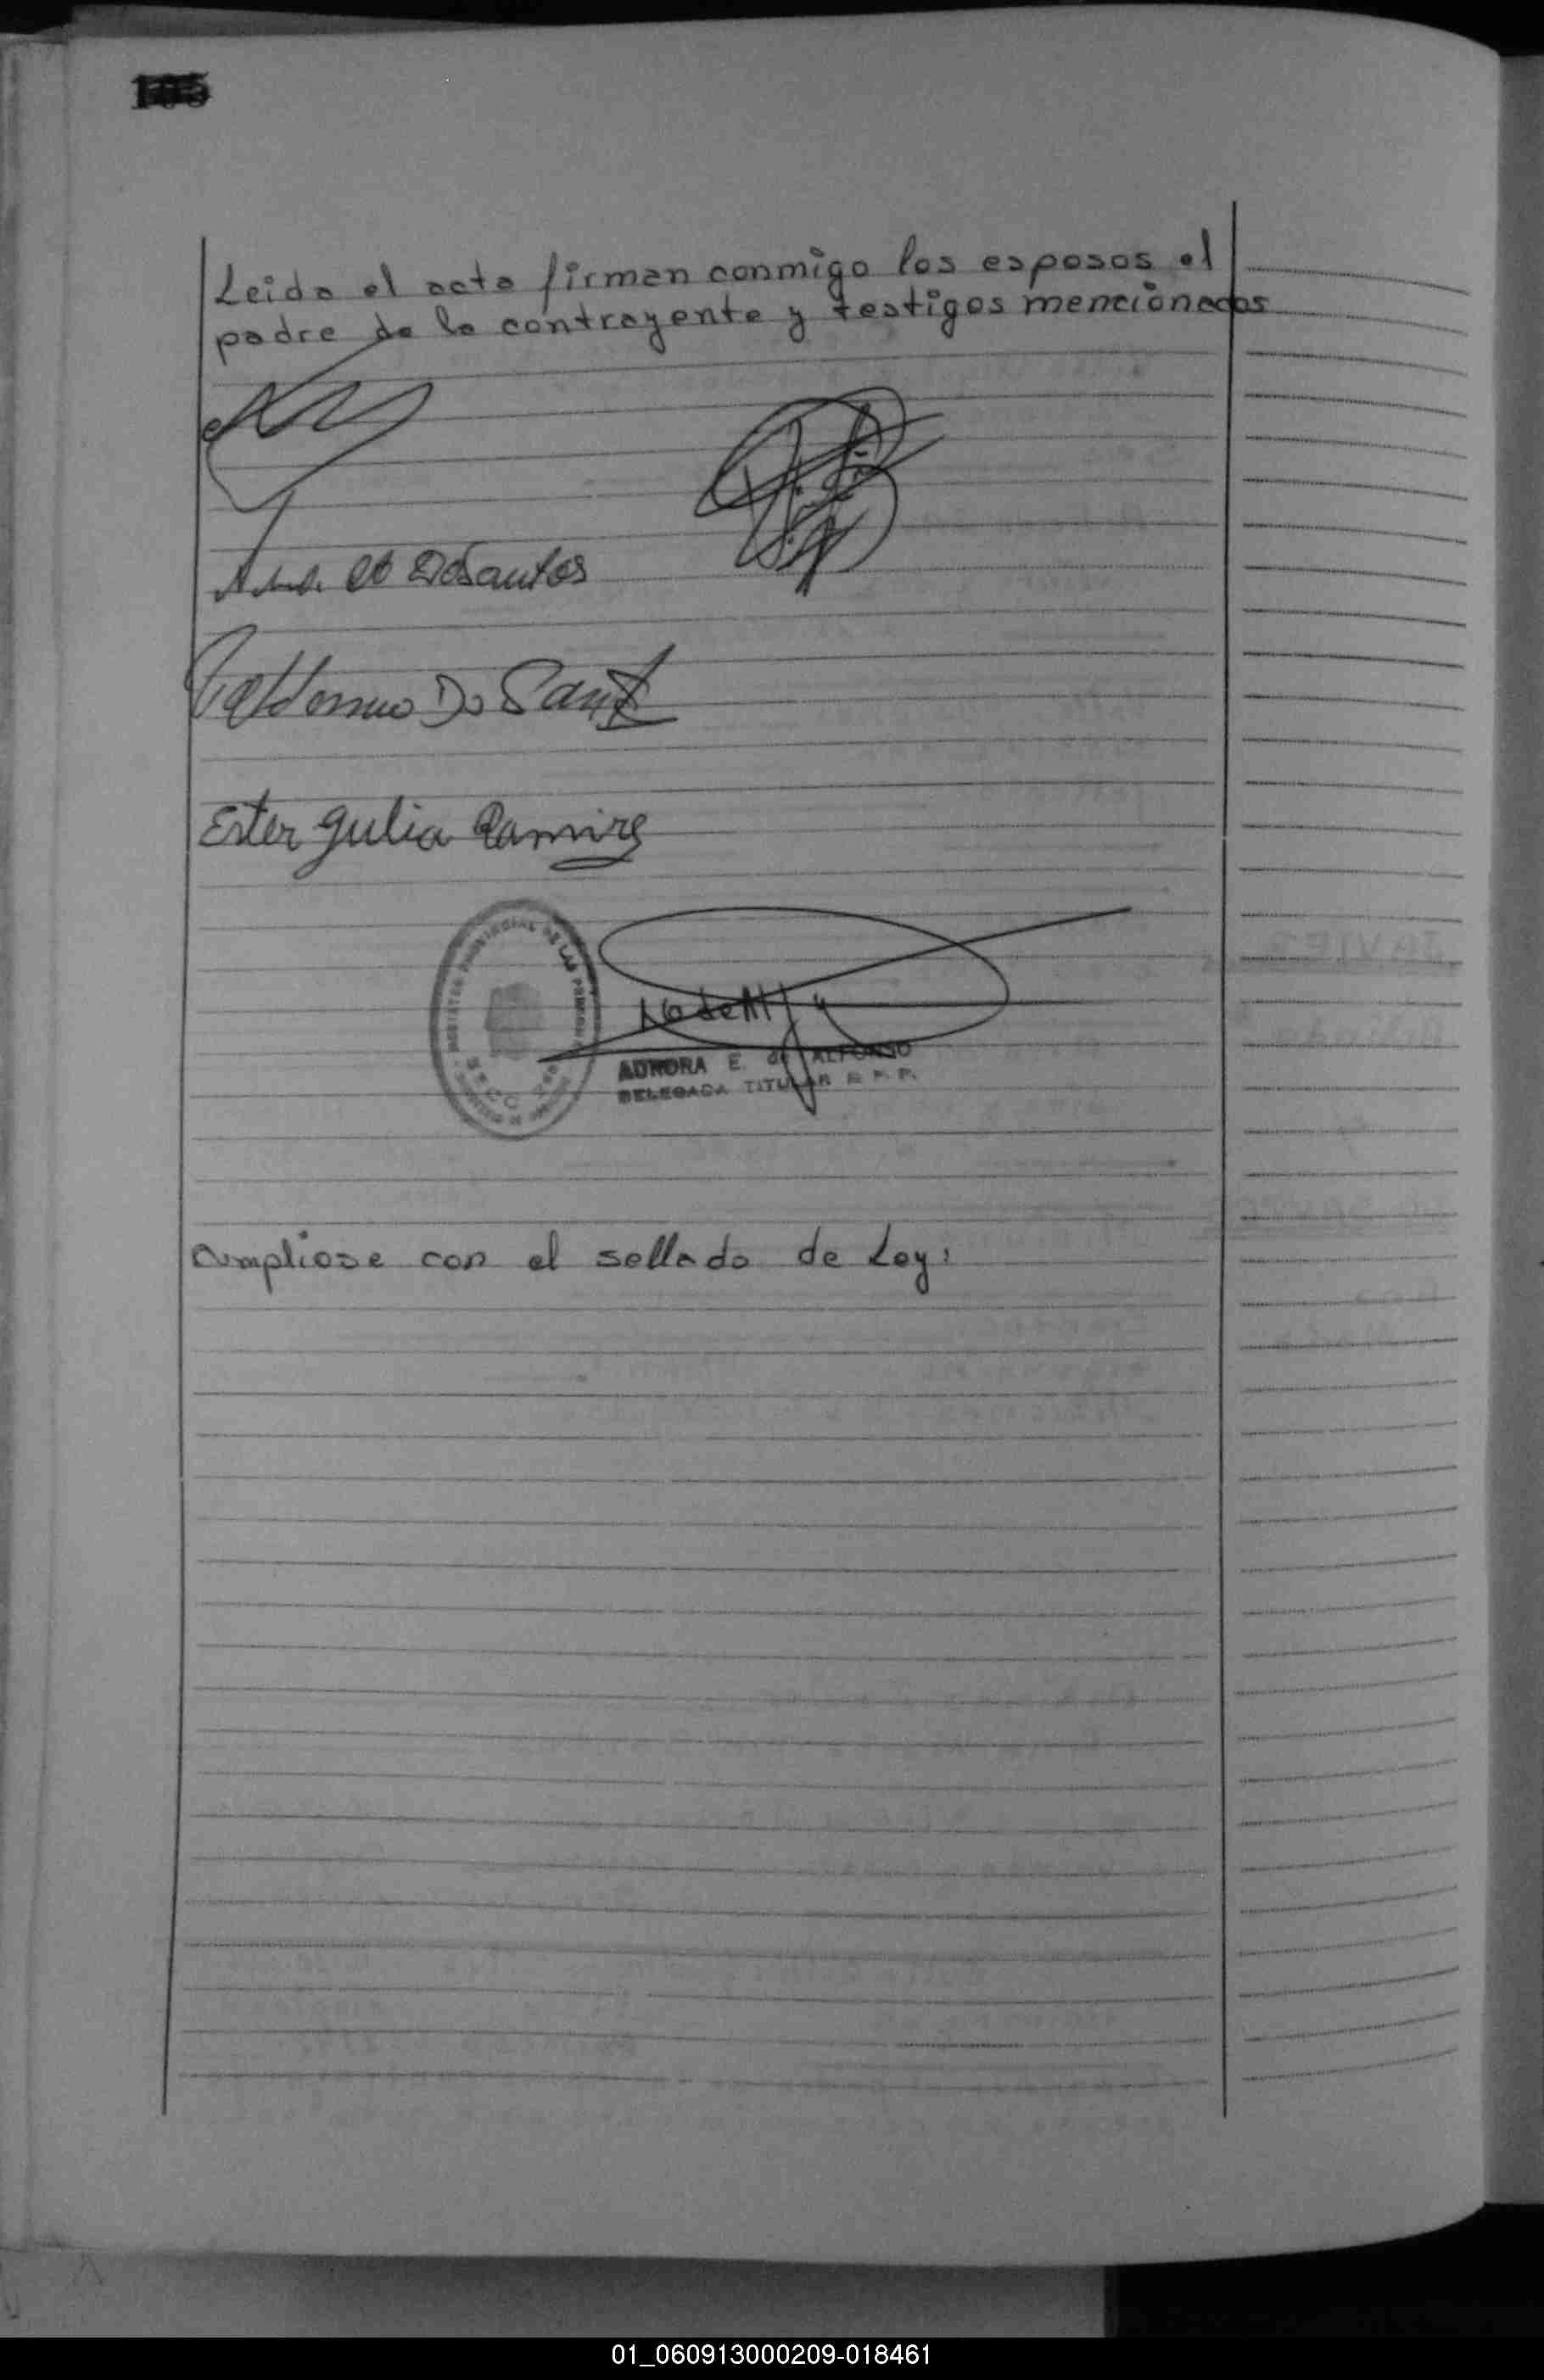 105
Leida el acta firman conmigo los esposos el
padre de la contrayente y testigos mencionados
Dos Santos
Valdomiro Dos Sant
Ester Julia Ramirez
REGISTRO PROVINCIAL DE LAS PERSONAS
AURORA E. de ALFONSO
DELEGADA TITULAR R. P. P.
Cumpliose con el sellado de Ley:
01_060913000209-018461